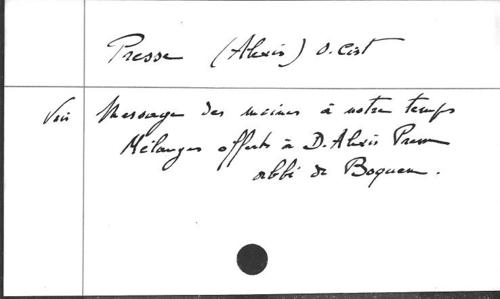 Presse (Alexis) O. Cist
Voir Message des moines à notre temps
Mélanges offerts à D. Alexis Presse
abbé de Boquen.